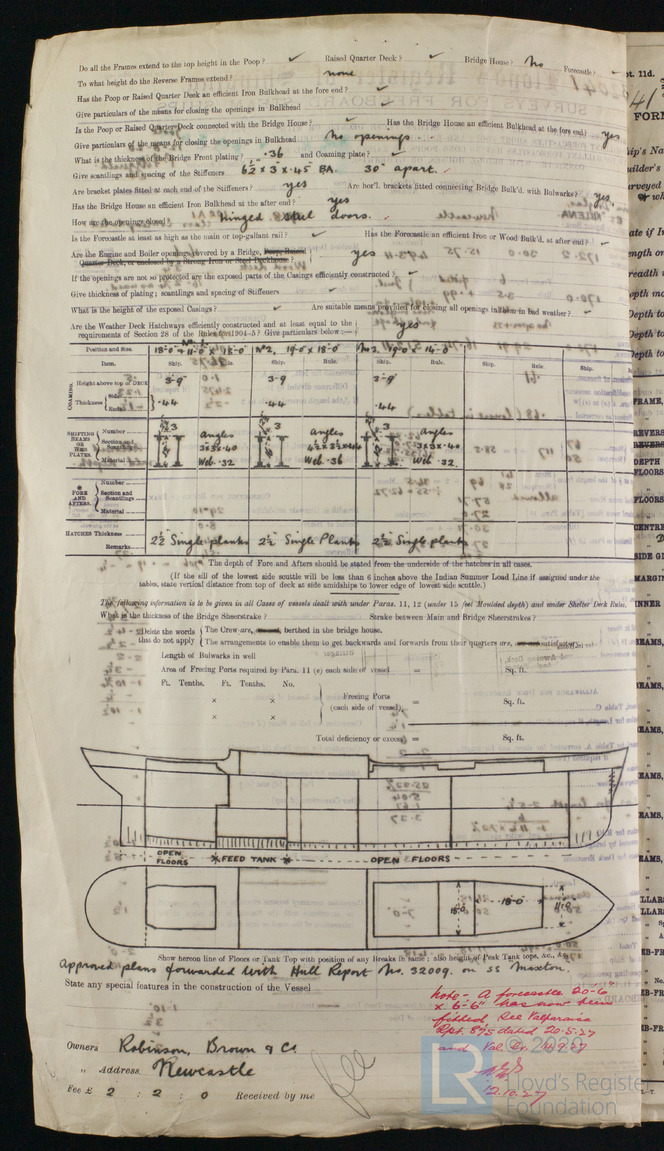 Do all the Frames extend to the top height in the Poop? ✓ Raised Quarter Deck? ✓ Bridge House? No Forecastle? ✓
To what height do the Reverse Frames extend? none
Has the Poop or Raised Quarter Deck an efficient Iron Bulkhead at the fore end? ✓
Give particulars of the means for closing the openings in Bulkhead
Is the Poop or Raised Quarter Deck connected with the Bridge House? ✓ Has the Bridge House an efficient Bulkhead at the fore end? yes
Give particulars of the means for closing the openings in Bulkhead No openings.
What is the thickness of the Bridge Front plating? .36 and Coaming plate? ✓
Give scantlings and spacing of the Stiffeners 6½ x 3 x .45 BA. 30" apart.
Are bracket plates fitted at each end of the Stiffeners? yes Are hor'l. brackets fitted connecting Bridge Bulk'd. with Bulwarks? yes.
Has the Bridge House an efficient Iron Bulkhead at the after end? yes
How are the openings closed? Hinged steel doors.
Is the Forecastle at least as high as the main or top-gallant rail? ✓ Has the Forecastle an efficient Iron or Wood Bulk'd. at after end? ✓
Are the Engine and Boiler openings covered by a Bridge, Poop, Raised
Quarter Deck, or enclosed by a Strong Iron or Steel Deckhouse? yes
If the openings are not so protected are the exposed parts of the Casings efficiently constructed? ✓
Give thickness of plating; scantlings and spacing of Stiffeners
What is the height of the exposed Casings? ✓ Are suitable means provided for closing all openings in them in bad weather? ✓
Are the Weather Deck Hatchways efficiently constructed and at least equal to the
requirements of Section 28 of the Rules for 1904-5? Give particulars below:— yes
Position and Size. No. 1. 18'-0" & 11'-0" x 18'-0" No 2, 19'-0 x 18'-0" No 3. 19'-0 x 14'-0"
Item. Ship. Rule. Ship. Rule. Ship. Rule. Ship.
COAMING. Height above top of DECK 3'-9" 3-9 3'-9"
Thickness Sides Ends .44 .44 .44
SHIFTING BEAMS OR WEB PLATES. Number 3 3 3
Section and Scantlings angles 3x3x.40 angles 4½x3½x.40 angles 3x3x.40
Material Web .32 Web .36 Web .32
* FORE AND AFTERS. Number
Section and Scantlings
Material
HATCHES Thickness 2½ Single planks 2½ Single Planks 2½ Single planks
Remarks
* The depth of Fore and Afters should be stated from the underside of the hatches in all cases.
(If the sill of the lowest side scuttle will be less than 6 inches above the Indian Summer Load Line if assigned under the
tables, state vertical distance from top of deck at side amidships to lower edge of lowest side scuttle.)
The following information is to be given in all Cases of vessels dealt with under Paras. 11, 12 (under 15 feet Moulded depth) and under Shelter Deck Rules.
What is the thickness of the Bridge Sheerstrake? Strake between Main and Bridge Sheerstrakes?
Delete the words this do not apply
The Crew are, are not, berthed in the bridge house.
The arrangements to enable them to get backwards and forwards from their quarters are, are not satisfactory
Length of Bulwarks in well
Area of Freeing Ports required by Para. 11 (e) each side of vessel = Sq. ft.
Ft. Tenths. Ft. Tenths. No.
× × Freeing Ports
× × (each side of vessel) = Sq. ft.
Total deficiency or excess = Sq. ft.
OPEN FLOORS FEED TANK OPEN FLOORS
18'-0" 18'-0" 11'-0
Show hereon line of Floors or Tank Top with position of any Breaks in same; also height of Peak Tank tops, &c.,
Approved plans forwarded with Hull Report No. 32009. on SS Maxton.
State any special features in the construction of the Vessel
Note - A forecastle 20-6
x 6'-6" has now been
fitted. See Valparaiso
Rpt. 875 dated 20.5.27
and Val. 14.9.27
12.10.27
Owners Robinson, Brown & Co.
" Address Newcastle
Fee £ 2 : 2 : 0 Received by me
© 2020
Lloyd's Register
Foundation
pt. 11d.
FORM
ip's Na
uilder's
urveyed
ate if
ength
readth
epth mo
Depth to
Depth to
Depth to
FRAME,
REVERS
DEPTH
FLOORS
FLOORS
CENTRE
SIDE GI
MARGIN
INNER
BEAMS,
BEAMS,
BEAMS,
BEAMS,
BEAMS,